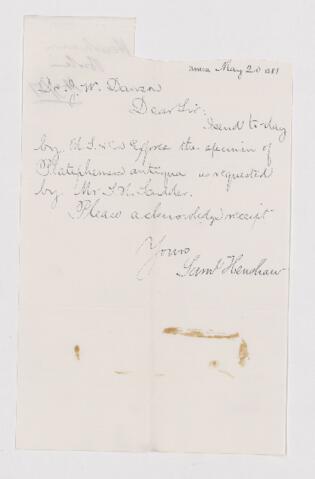 May 20 1881
Dr. J. W. Dawson
Dear Sir:
I send to-day
by Express the specimen of
Platephemera antiqua as requested
by Mr. S. H. Scudder.
Please acknowledge receipt
Yours
Saml Henshaw